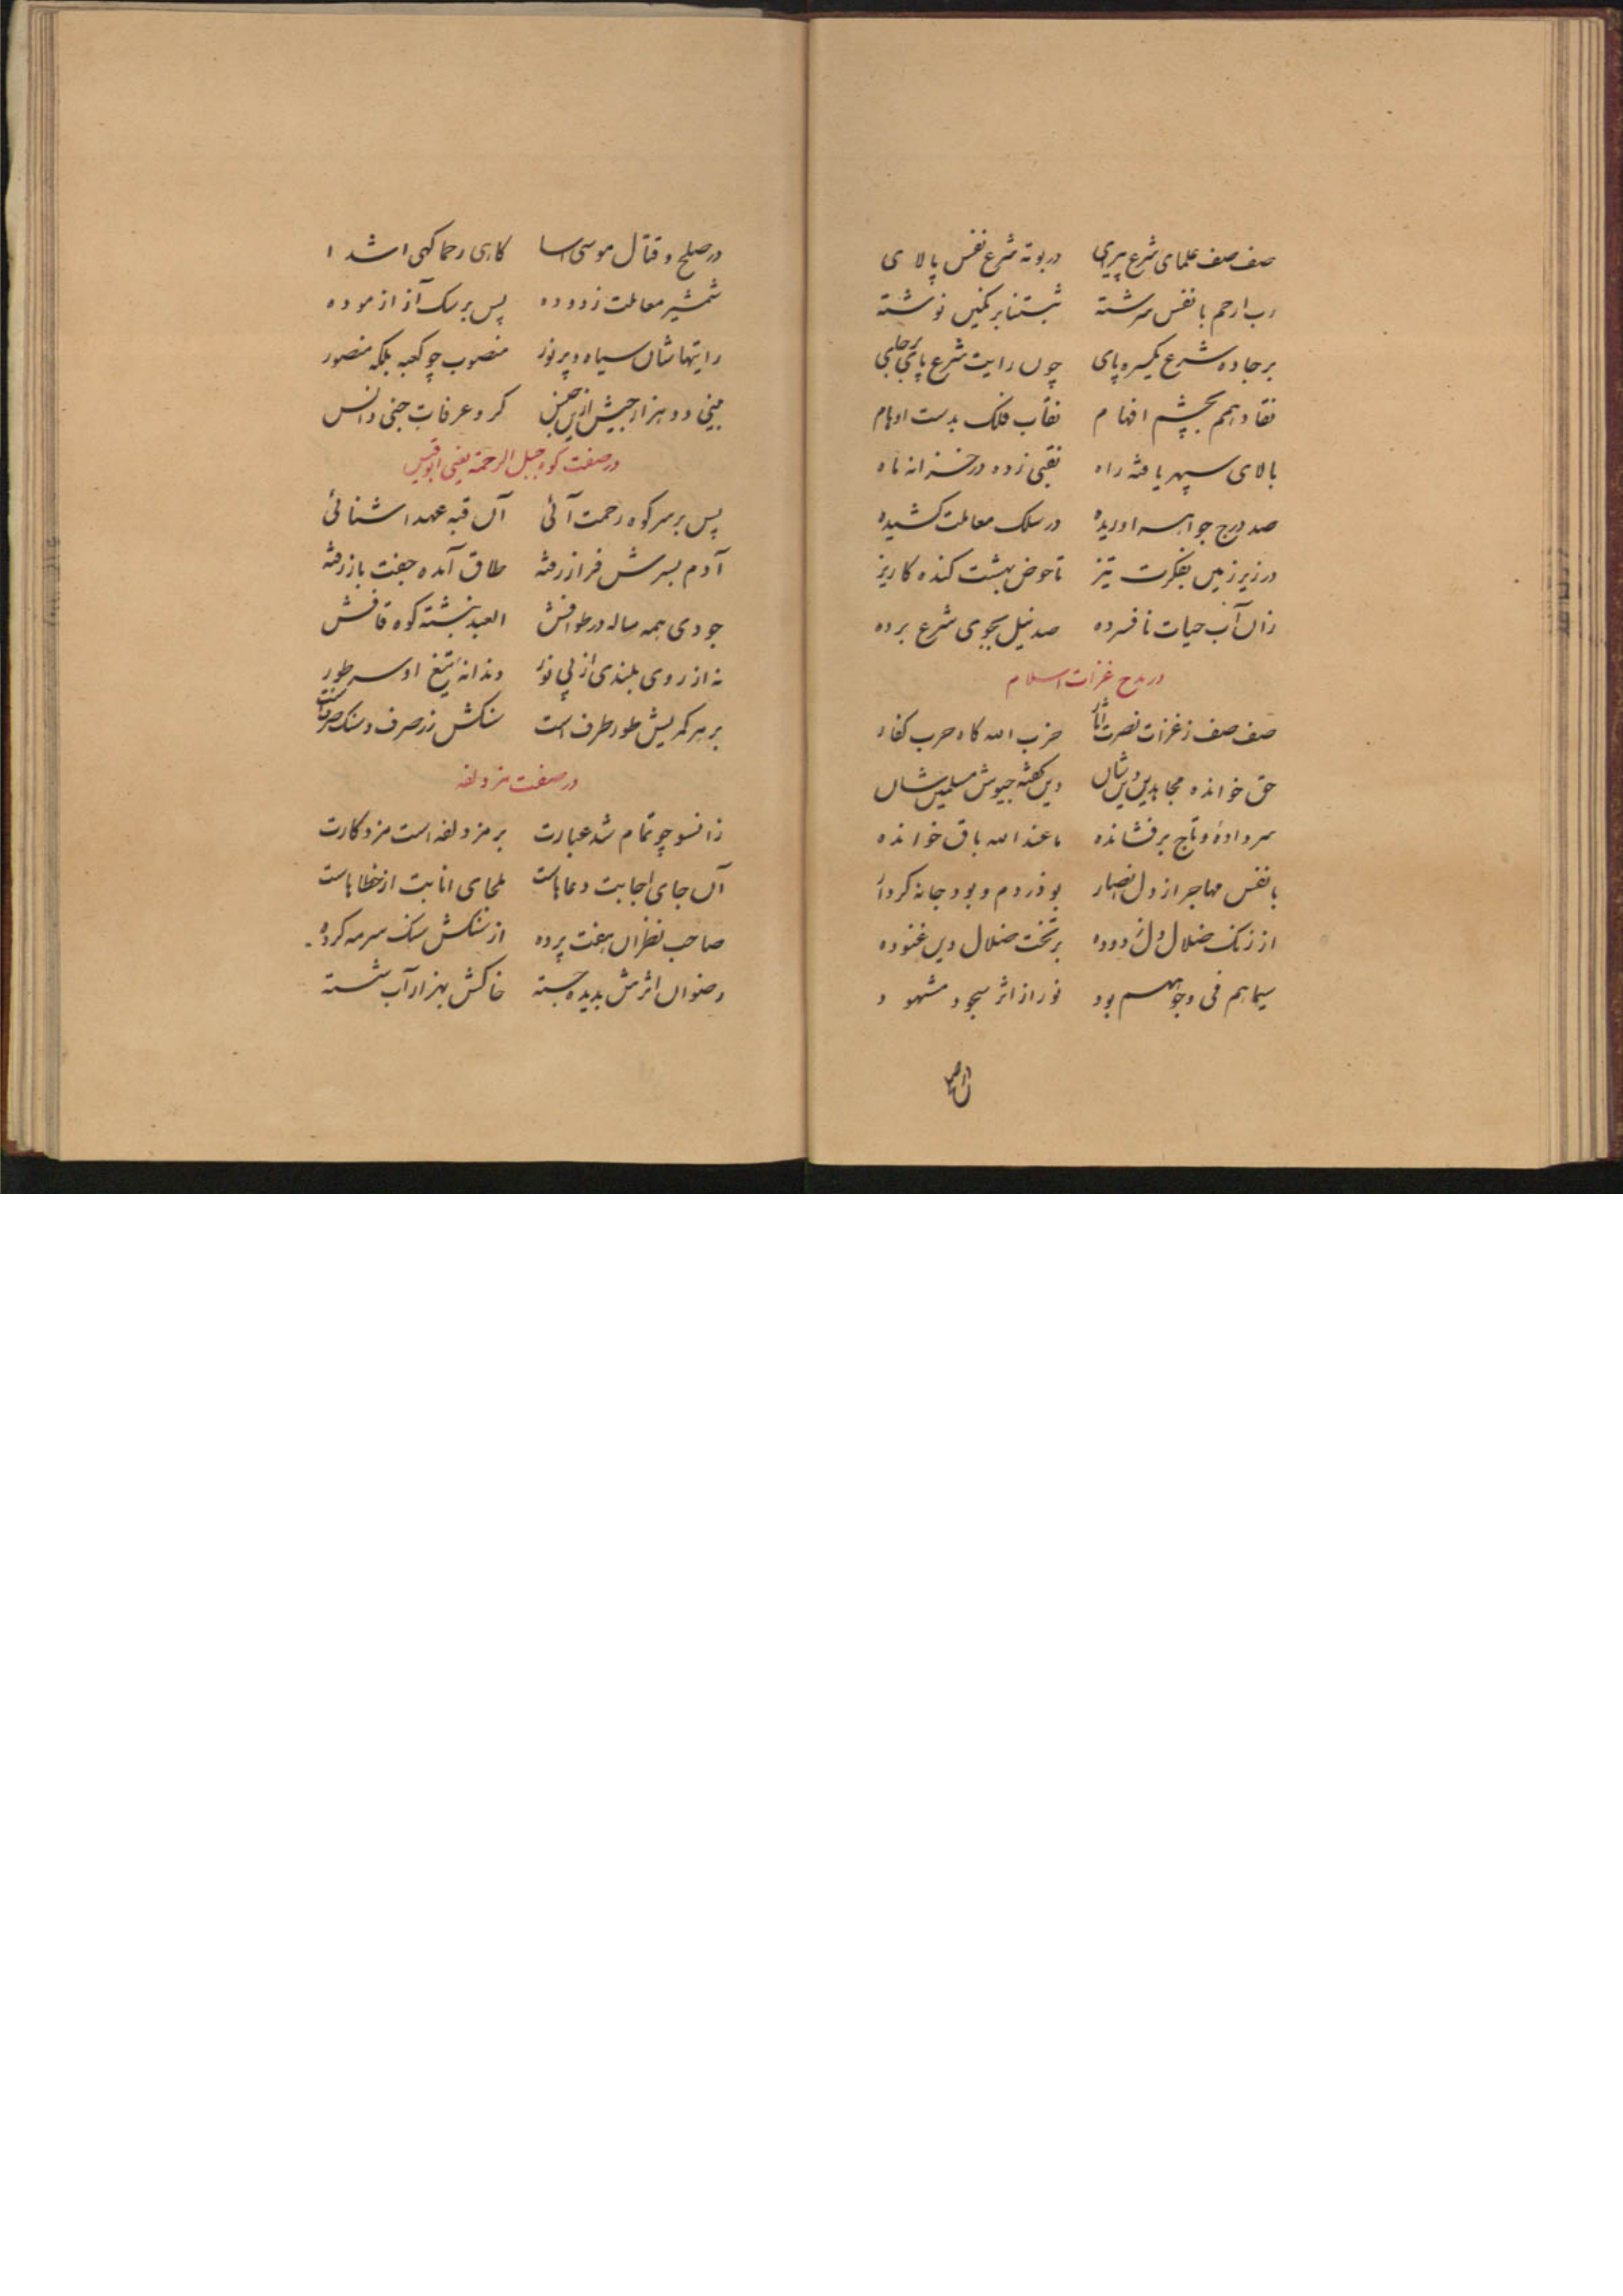 صف صف علمای شرع پیرای در بوته شرع نفس پالای
رب ارحم با نفس سرشته ثبتنا بر نگین نوشته
بر جاده شرع یکسره پای چون رایت شرع پای برجای
نقاد همم بچشم افهام نقاب فلک بدست اوهام
بالای سپهر یافته راه نقبی زده در خزانه ماه
صد درج جواهر اوریده در سلک معاملت کشیده
در زیر زمین بفکرت تیز تا حوض بهشت کنده کاریز
زان آب حیات نافسرده صد نیل بجوی شرع برده
در مدح غزات اسلام
صف صف ز غزات نصرت آثار حزب الله گاه حرب کفار
حق خوانده مجاهدین دین شان دین گفته جیوش مسلمین شان
سر داده و تاج برفشانده ما عند الله باق خوانده
با نفس مهاجر از دل انصار بوذر دم و بودجانه کردار
از زنک ضلال دل زدوده بر تخت ضلال دین غنوده
سیماهم فی وجوههم بود نور از اثر سجود مشهود
در صلح و قتال موسی آسا گاهی رحما گهی اشدا
شمشیر معاملت زدوده پس بر سک آز ازموده
رایتهاشان سیاه و پر نور منصوب چو کعبه بلکه منصور
بینی دو هزار جیش ازین جنس گرد عرفات جنی و انس
در صفت کوه جبل الرحمة یعنی ابوقبیس
پس بر سر کوه رحمت آئی آن قبه عهد اشنائی
آدم بسرش فراز رفته طاق آمده جفت باز رفته
جودی همه ساله در طوافش العبد نبشته کوه قافش
نه از روی بلندی از پی نور دندانه تیغ او سر طور
بر هر کمریش طور طرف است سنکش زر صرف و سنک صرف است
در صفت مزدلفه
زانسو چو تمام شد عبارت بر مزدلفه است مزد کارت
آن جای اجابت دعاهاست ملجای انابت از خطاهاست
صاحب نظران هفت پرده از سنکش سنک سرمه کرده
رضوان اثرش بدیده جسته خاکش بهزار آب شسته